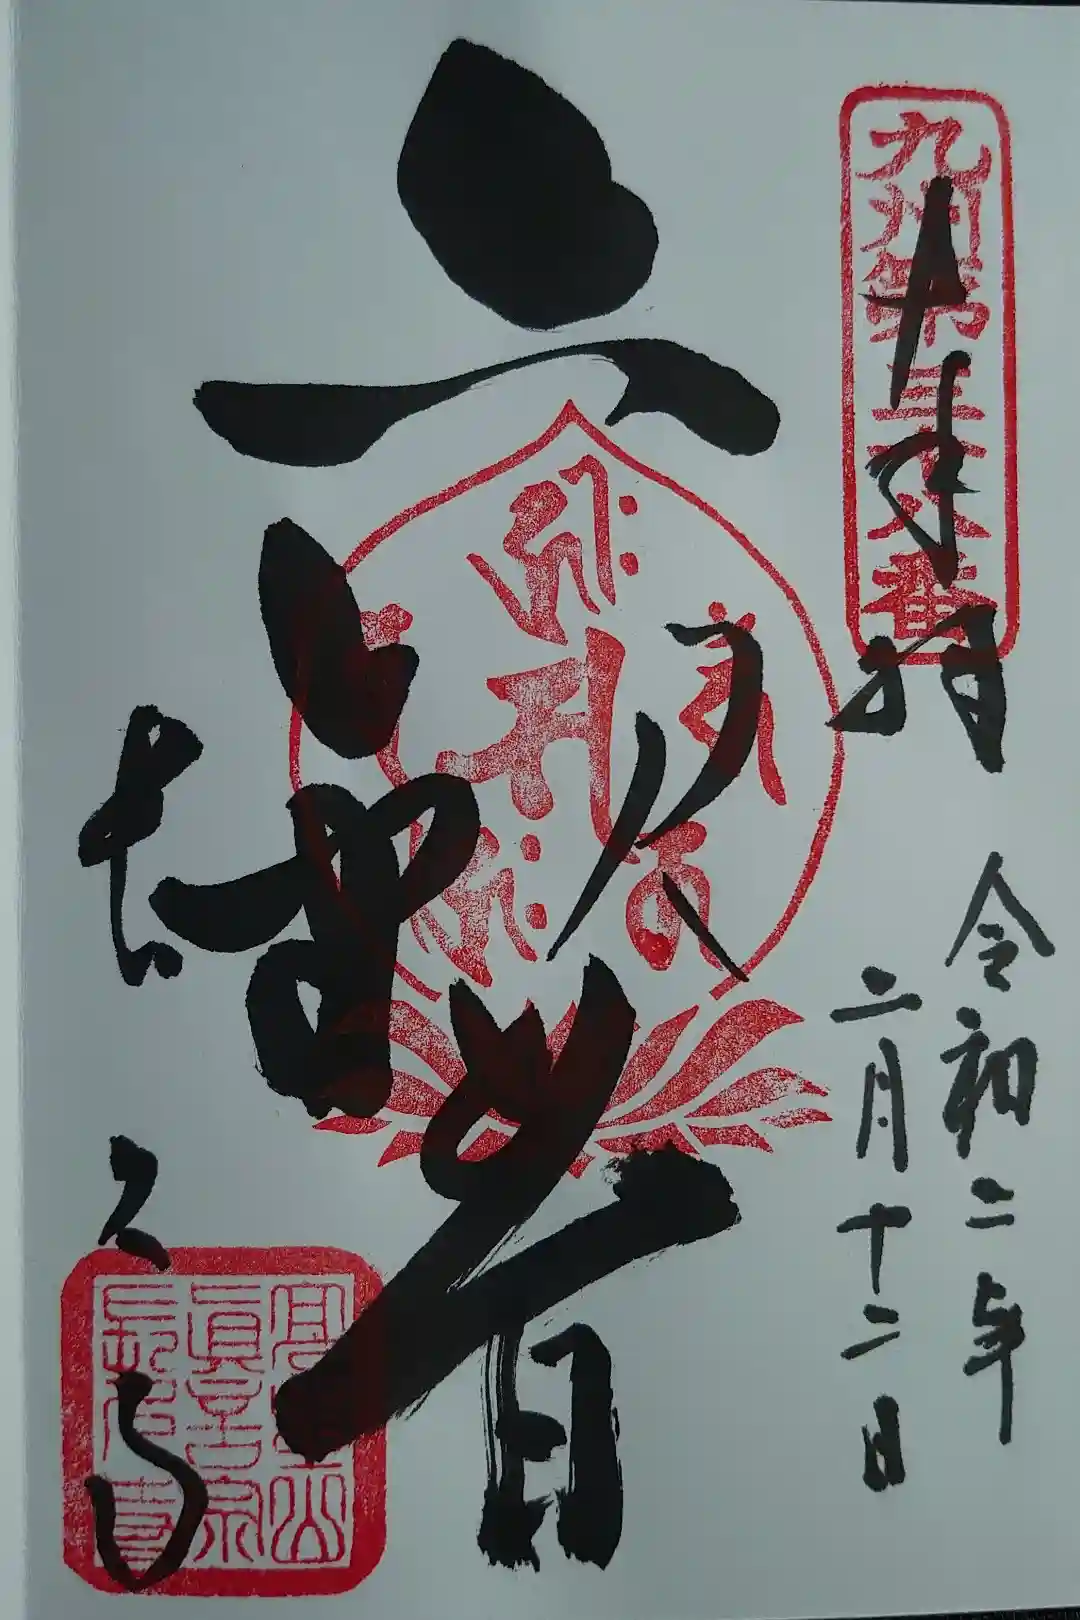 九州第三十六番
奉拝
令和二年
二月十二日
六観音
長久寺